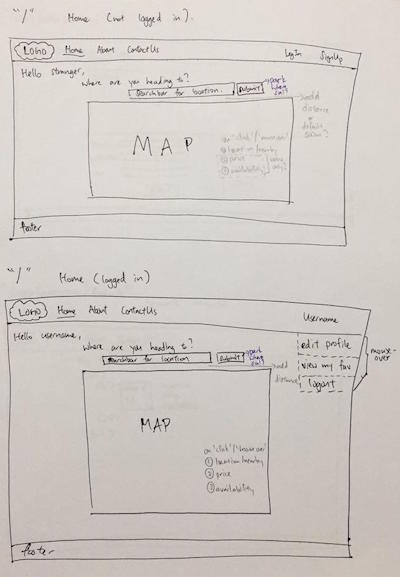 "/" Home (not logged in).
LOGO Home About Contact Us Log In Sign Up
Hello stranger,
Where are you heading to?
Searchbar for location. Submit
park
when
MAP
add
distance
default
on "click"/"mouseover"
① location/nearby
② price
③ availability
footer
"/" Home (logged in)
LOGO Home About Contact Us Username
Hello username,
Where are you heading to?
Searchbar for location Submit
park
when
add
distance
edit profile
view my fav
logout
mouse-
over
MAP
on 'click'/'mouse over'
① location/nearby
② price
③ availability
footer